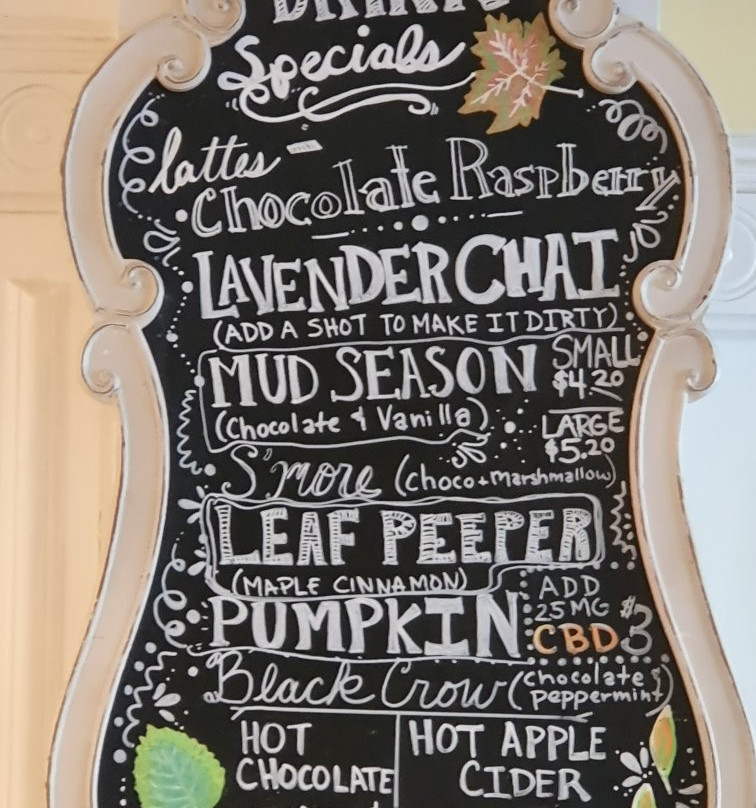 DRINK
Specials
lattes
Chocolate Raspberry
LAVENDER CHAI
(ADD A SHOT TO MAKE IT DIRTY)
MUD SEASON
(Chocolate & Vanilla)
SMALL
$4.20
LARGE
$5.20
S'more (choco+Marshmallow)
LEAF PEEPER
(MAPLE CINNAMON)
PUMPKIN
ADD
25MG $3
CBD
Black Crow (chocolate & peppermint)
HOT
CHOCOLATE
HOT APPLE
CIDER